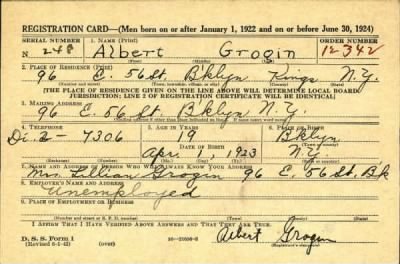 REGISTRATION CARD—(Men born on or after January 1, 1922 and on or before June 30, 1924)
SERIAL NUMBER 1. NAME (Print) ORDER NUMBER
N 248 Albert Grogin 12342
(First) (Middle) (Last)
2. PLACE OF RESIDENCE (Print)
96 E. 56 St. Bklyn Kings N.Y.
(Number and street) (Town, township, village, or city) (County) (State)
[THE PLACE OF RESIDENCE GIVEN ON THE LINE ABOVE WILL DETERMINE LOCAL BOARD
JURISDICTION; LINE 2 OF REGISTRATION CERTIFICATE WILL BE IDENTICAL]
3. MAILING ADDRESS
96 E. 56 St. Bklyn N.Y.
[Mailing address if other than place indicated on line 2. If same insert word same]
4. TELEPHONE 5. AGE IN YEARS 6. PLACE OF BIRTH
Di. 2-7306 19 Bklyn
DATE OF BIRTH
Apr. 1, 1923 N.Y.
7. NAME AND ADDRESS OF PERSON WHO WILL ALWAYS KNOW YOUR ADDRESS
Mrs. Lillian Grogin 96 E. 56 St. Bk
8. EMPLOYER'S NAME AND ADDRESS
Unemployed
9. PLACE OF EMPLOYMENT OR BUSINESS
(Number and street or R. F. D. number) (Town) (County) (State)
I AFFIRM THAT I HAVE VERIFIED ABOVE ANSWERS AND THAT THEY ARE TRUE.
D. S. S. Form 1
(Revised 6-1-42) Albert Grogin
(Registrant's signature)